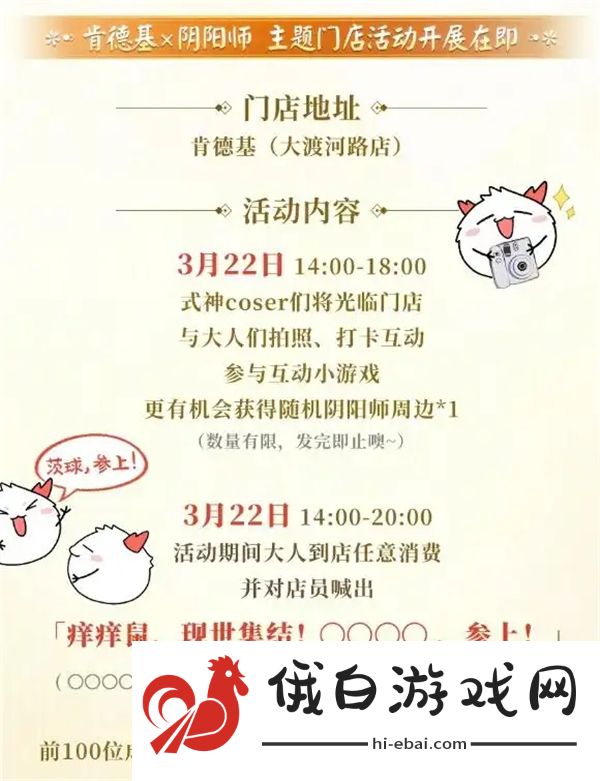 肯德基×阴阳师 主题门店活动开展在即
门店地址
肯德基（大渡河路店）
活动内容
3月22日 14:00-18:00
式神coser们将光临门店
与大人们拍照、打卡互动
参与互动小游戏
更有机会获得随机阴阳师周边*1
（数量有限，发完即止噢~）
茨球，参上！
3月22日 14:00-20:00
活动期间大人到店任意消费
并对店员喊出
「痒痒鼠，现世集结！〇〇〇〇，参上！」
（〇〇〇〇
前100位
俄白游戏网
hi-ebai.com